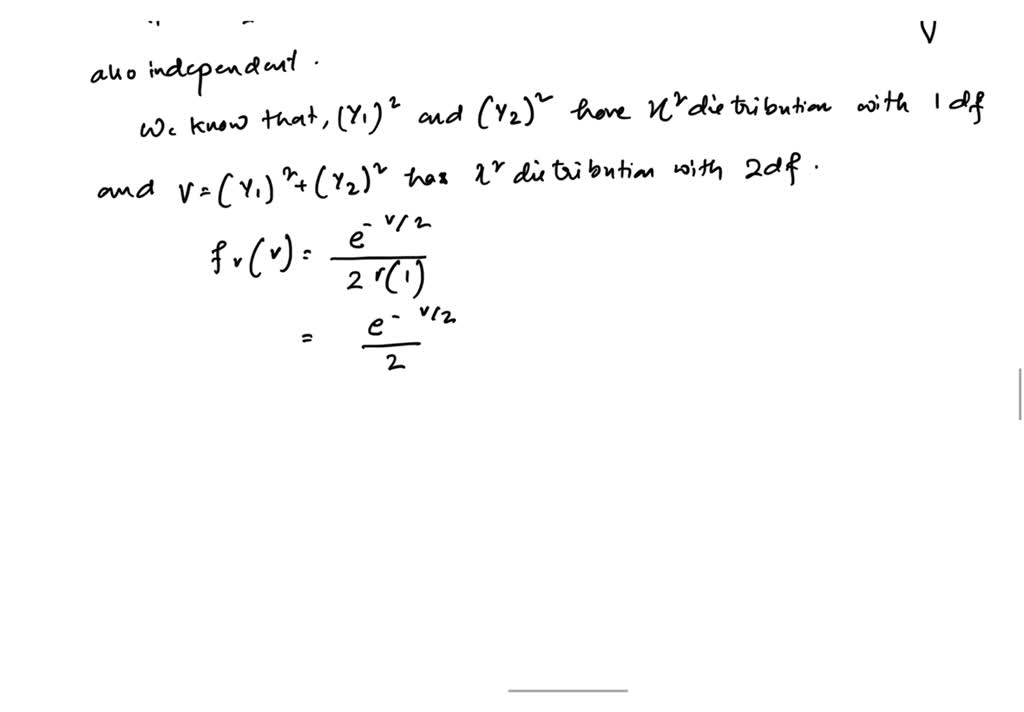 V
also independent.
We know that, (Y₁)² and (Y₂)² have χ² distribution with 1 df
and V = (Y₁)² + (Y₂)² has χ² distribution with 2 df.
fᵥ(v) = e^(-v/2) / 2 Γ(1)
= e^(-v/2) / 2